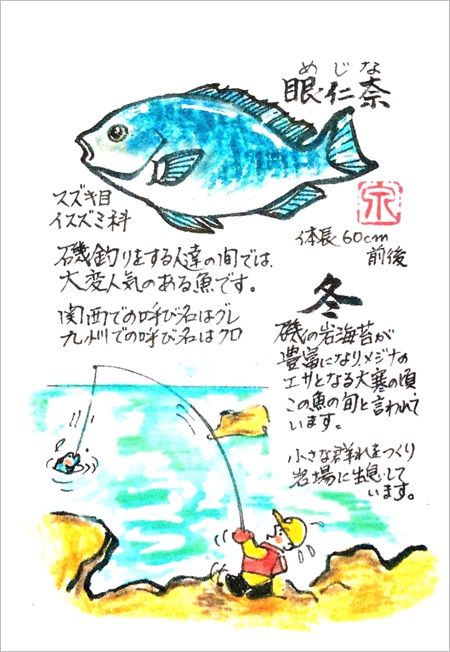 めじな
眼仁奈
スズキ目
イスズミ科
体長60cm
前後
磯釣りをする人達の間では、
大変人気のある魚です。
関西での呼び名はグレ
九州での呼び名はクロ
冬
磯の岩海苔が
豊富になり、メジナの
エサとなる大寒の頃
この魚の旬と言われて
います。
小さな群れをつくり
岩場に生息して
います。